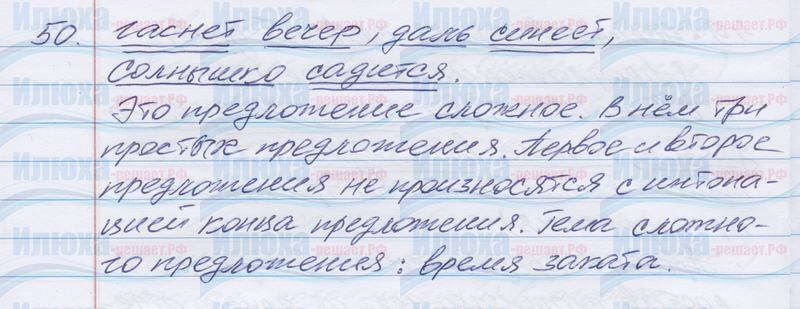 50. гаснет вечер, даль синеет,
солнышко садится.
Это предложение сложное. В нём три
простых предложения. Первое и второе
предложения не произносятся с интона-
цией конца предложения. Тема сложно-
го предложения: время заката.